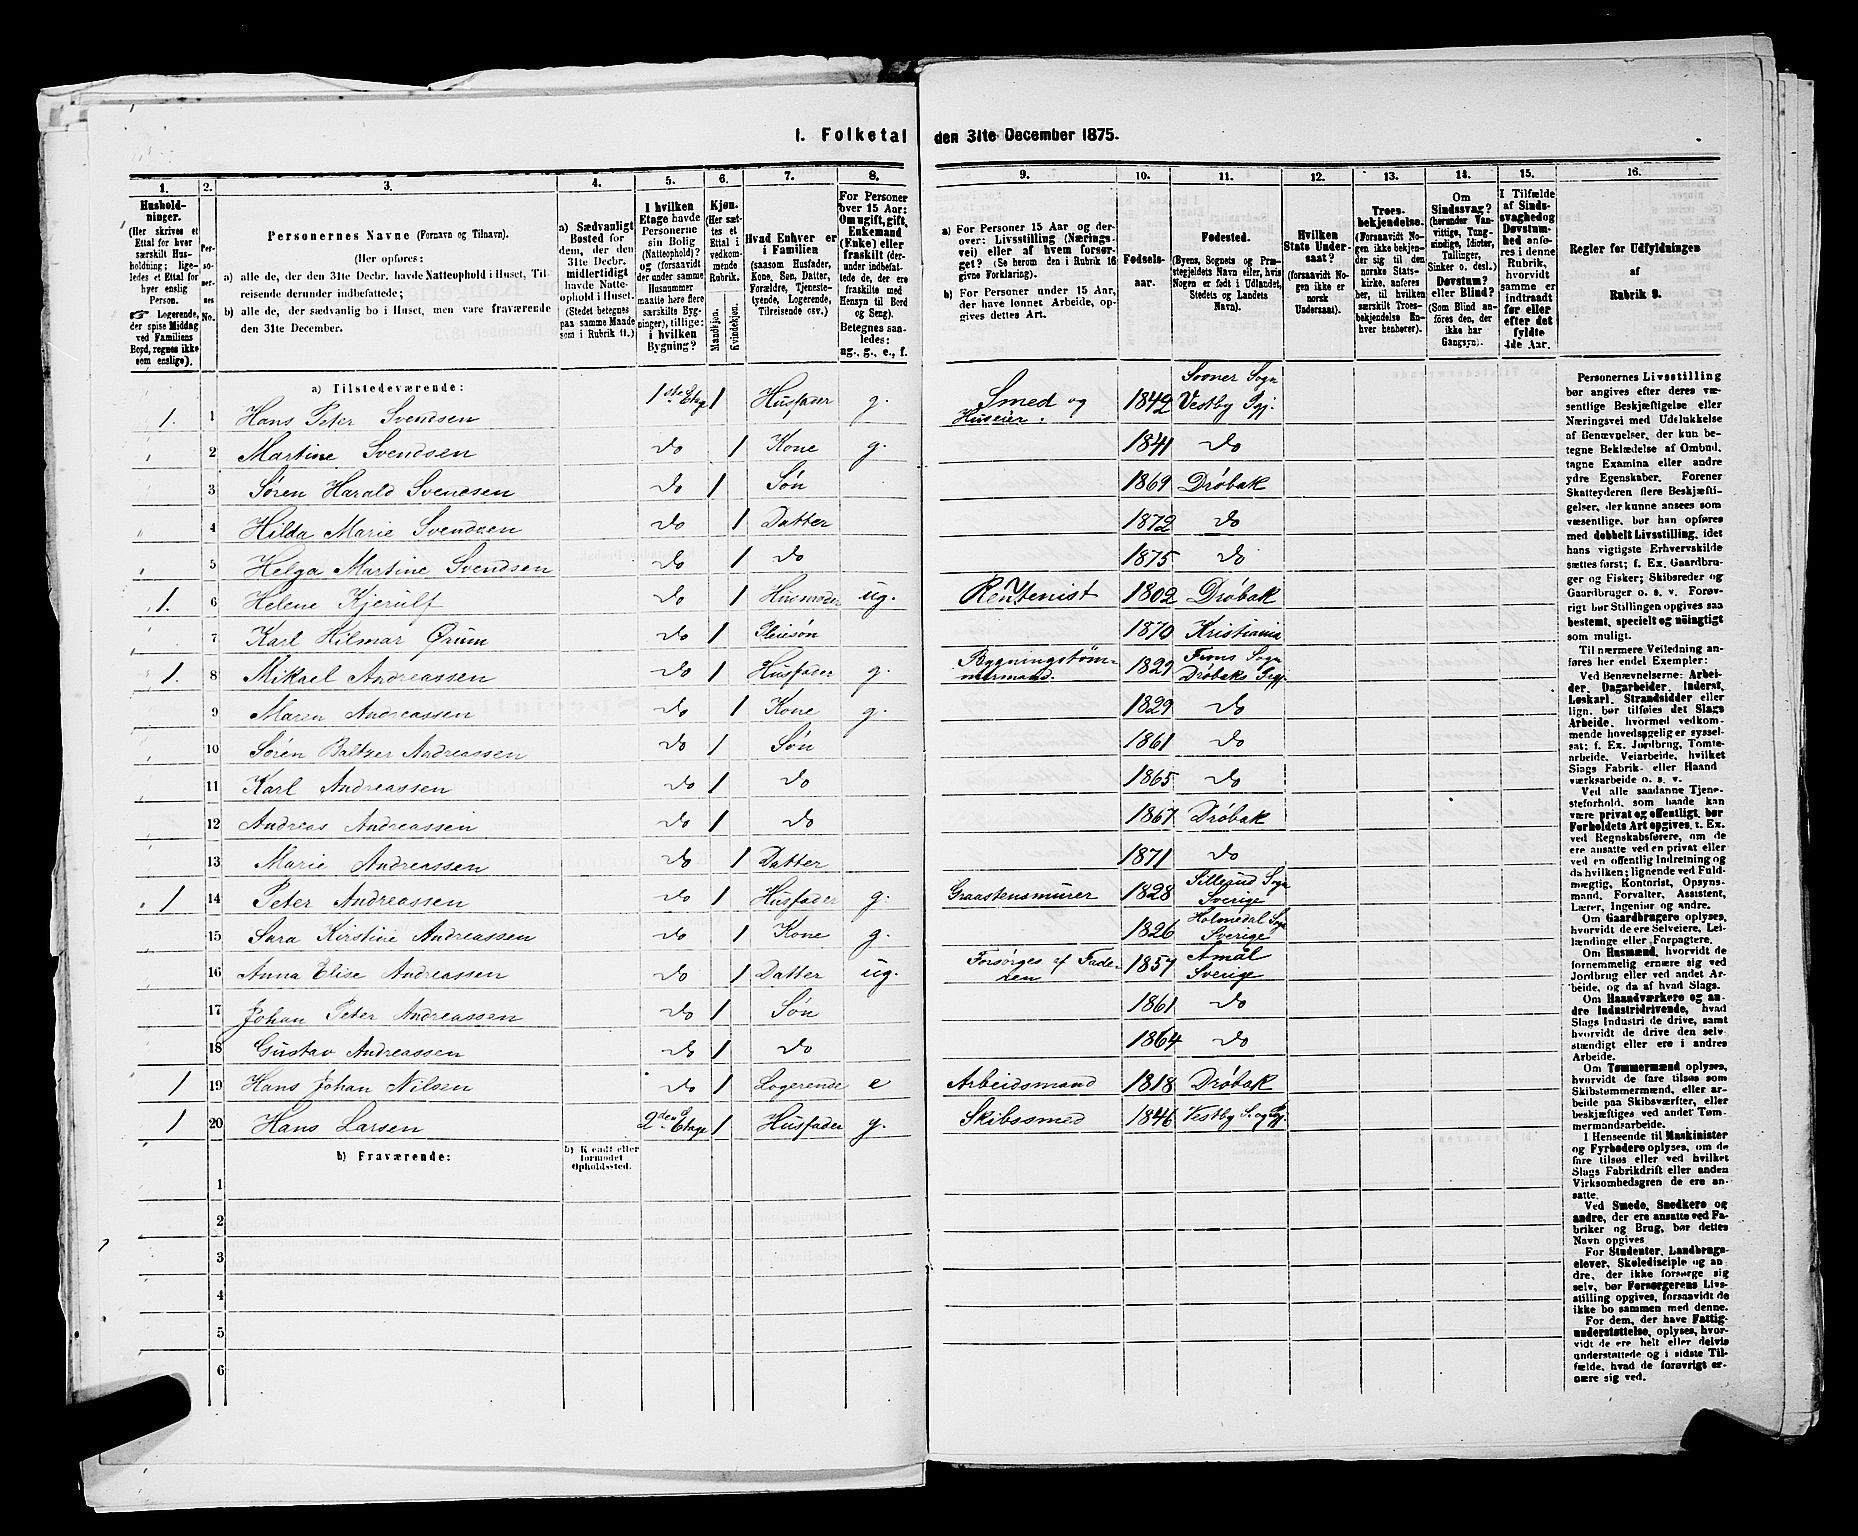 1. Folketal den 31te December 1875.
1.
2.
3.
4.
5.
6.
7.
8.
9.
10.
11.
12.
13.
14.
15.
16.
Hushold-
ninger.
(Her skrives et
Ettal for hver
særskilt Hus-
holdning; lige-
ledes et Ettal for
hver enslig
Person.
☞ Logerende,
der spise Middag
ved Familiens
Bord, regnes ikke
som enslige).
Per-
so-
ner-
nes
No.
Personernes Navne (Fornavn og Tilnavn).
(Her opføres:
a) alle de, der den 31te Decbr. havde Natteophold i Huset, Til-
reisende derunder indbefattede;
b) alle de, der sædvanlig bo i Huset, men vare fraværende
den 31te December.
a) Sædvanligt
Bosted for
dem, der den
31te Decbr.
midlertidigt
havde Natte-
ophold i Huset.
(Stedet betegnes
paa samme Maade
som i Rubrik 11.)
I hvilken
Etage havde
Personerne
sin Bolig
(Natteophold)?
og (forsaavidt
der under samme
Husnummer
maatte høre flere
særskilte Byg-
ninger), tillige:
i hvilken
Bygning?
Kjøn.
(Her sæt-
tes et
Ettal i
vedkom-
mende
Rubrik.
Mandkjøn.
Kvindekjøn.
Hvad Enhver er
i Familien
(saasom Husfader,
Kone, Søn, Datter,
Forældre, Tjeneste-
tyende, Logerende,
Tilreisende csv.)
For Personer
over 15 Aar:
Om ugift, gift,
Enkemand
(Enke) eller
fraskilt (der-
under indbefat-
tede de, der ere
fraskilte med
Hensyn til Bord
og Seng).
Betegnes saa-
ledes:
ug., g., e., f.
a) For Personer 15 Aar og der-
over: Livsstilling (Nærings-
vei) eller af hvem forsør-
get? (Se herom den i Rubrik 16
givne Forklaring).
b) For Personer under 15 Aar,
der have lønnet Arbeide, op-
gives dettes Art.
Fødsels-
aar.
Fødested.
(Byens, Sognets og Præ-
stegjeldets Navn eller, hvis
Nogen er født i Udlandet,
Stedets og Landets
Navn).
Hvilken
Stats Under-
saat?
(forsaavidt No-
gen ikke er
norsk
Undersaat).
Troes-
bekjendelse.
(Forsaavidt No-
gen ikke bekjen-
der sig til den
norske Stats-
kirke, anføres
her, til hvilken
særskilt Troes-
bekjendelse En-
hver henhører).
Om
Sindssvag?
(herunder Van-
vittige, Tung-
sindige, Idioter,
Tullinger,
Sinker o. desl.)
Døvstum?
eller Blind?
(Som Blind an-
føres den, der
ikke har
Gangsyn).
I Tilfælde
af Sinds-
svaghed og
Døvstum-
hed anfø-
res i denne
Rubrik,
hvorvidt
samme er
indtraadt
før eller
efter det
fyldte
4de Aar.
Regler for Udfyldningen
af
Rubrik 9.
a) Tilstedeværende:
1. 1 Hans Peter Svendsen 1ste Etage 1 Husfader g. Smed og Huseier. 1842 Sooner Sogn Vestby Pgj.
2 Martine Svendsen do 1 Kone g. 1841 do
3 Søren Harald Svendsen do 1 Søn 1869 Drøbak
4 Hilda Marie Svendsen do 1 Datter 1872 do
5 Helga Martine Svendsen do 1 do 1875 do
1. 6 Helene Kjerulf do 1 Husmoder ug. Rentenist 1802 Drøbak
7 Karl Hilmar Ørum do 1 Pleiesøn 1870 Kristiania
1. 8 Mikael Andreassen do 1 Husfader g. Bygningstøm-mermand. 1829 Frons Sogn Drøbaks Pgj.
9 Maren Andreassen do 1 Kone g. 1829 do
10 Søren Baltzer Andreassen do 1 Søn 1861 do
11 Karl Andreassen do 1 do 1865 do
12 Andreas Andreassen do 1 do 1867 Drøbak
13 Marie Andreassen do 1 Datter 1871 do
1 14 Peter Andreassen do 1 Husfader g. Graastensmurer 1828 Sillerud Sogn Sverige
15 Sara Kirstine Andreassen do 1 Kone g. 1826 Holmedal Sogn Sverige
16 Anna Elise Andreassen do 1 Datter ug. Forsørges af Fade-ren 1857 Amål Sverige
17 Johan Peter Andreassen do 1 Søn 1861 do
18 Gustav Andreassen do 1 do 1864 do
1 19 Hans Johan Nilsen do 1 Logerende e Arbeidsmand 1818 Drøbak
1 20 Hans Larsen 2den Etage 1 Husfader g. Skibssmed 1846 Vestby S. og Pgj.
b) Fraværende:
b) Kjendt eller
formodet
Opholdssted.
1
2
3
4
5
6
Personernes Livsstilling
bør angives efter deres væ-
sentlige Beskjæftigelse eller
Næringsvei med Udelukkelse
af Benævnelser, der kun be-
tegne Beklædelse af Ombud,
tagne Examina eller andre
ydre Egenskaber. Forener
Skatteyderen flere Beskjæfti-
gelser, der kunne ansees som
væsentlige, bør han opføres
med dobbelt Livsstilling, idet
hans vigtigste Erhvervskilde
sættes først; f. Ex. Gaardbru-
ger og Fisker; Skibsreder og
Gaardbruger o. s. v. Forøv-
rigt bør Stillingen opgives saa
bestemt, specielt og nöiagtigt
som muligt.
Til nærmere Veiledning an-
føres her endel Exempler:
Ved Benævnelserne: Arbei-
der, Dagarbeider, Inderst,
Løskarl, Strandsidder eller
lign. bør tilføies det Slags
Arbeide, hvormed vedkom-
mende hovedsagelig er syssel-
sat; f. Ex. Jordbrug, Tomte-
arbeide, Veiarbeide, hvilket
Slags Fabrik- eller Haand
værksarbeide o. s. v.
Ved alle saadanne Tjene-
steforhold, som baade kan
være privat og offentligt, bør
Forholdets Art opgives, t. Ex.
ved Regnskabsførere, om de
ere ansatte ved en privat eller
ved en offentlig Indretning og
da hvilken; lignende ved Fuld-
mægtig, Kontorist, Opsyns-
mand, Forvalter, Assistent,
Lærer, Ingeniør og andre.
Om Gaardbrugere oplyses,
hvorvidt de ere Selveiere, Lei-
lændinge eller Forpagtere.
Om Husmænd, hvorvidt de
fornemmelig ernære sig ved
Jordbrug eller ved andet Ar-
beide, og da af hvad Slags.
Om Haandværkere og an-
dre Industridrivende, hvad
Slags Industri de drive, samt
hvorvidt de drive den selv-
stændigt eller ere i andres
Arbeide.
Om Tømmermænd oplyses,
hvorvidt de fare tilsøs som
Skibstømmermænd, eller ar-
beide paa Skibsværfter, eller
beskjæftiges ved andet Tøm-
mermandsarbeide.
I Henseende til Maskinister
og Fyrbødere oplyses, om de
fare tilsøs eller ved hvilket
Slags Fabrikdrift eller anden
Virksomhedsgren de ere an-
satte.
Ved Smede, Snedkere og
andre, der ere ansatte ved Fa-
briker og Brug, bør dettes
Navn opgives
For Studenter, Landbrugs-
elever, Skoledisciple og an-
dre, der ikke forsørge sig
selv, bør Forsørgerens Livs-
stilling opgives, forsaavidt de
ikke bo sammen med denne.
For dem, der have Fattig-
understøttelse, oplyses, hvor-
vidt de ere helt eller delvis
understøttede og i sidste Til-
fælde, hvad de forøvrigt er-
nære sig ved.